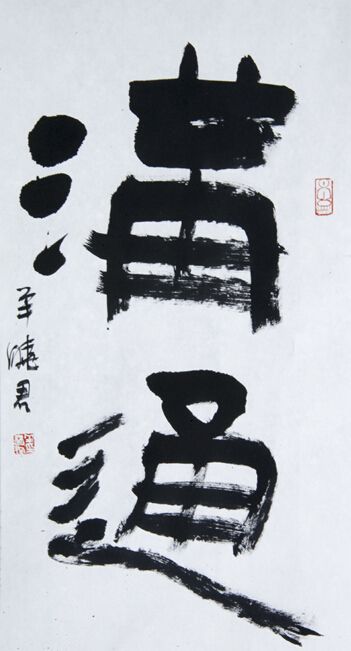 溝通
羊曉君